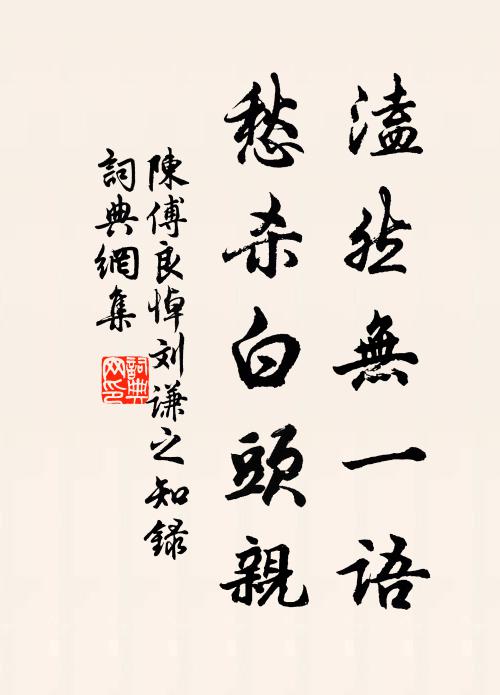 溘然無一语
愁杀白頭親
陳傅良悼刘谦之知録
詞典網集
詞典
网印